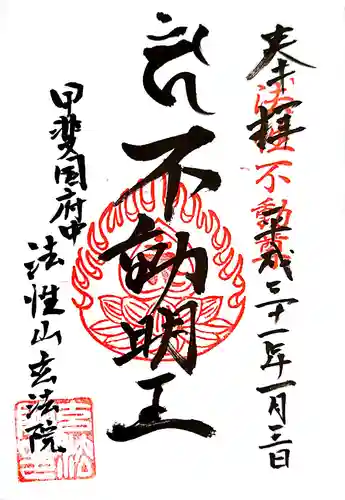 奉拝
平成三十一年一月三日
不動明王
甲斐国府中
法性山玄法院